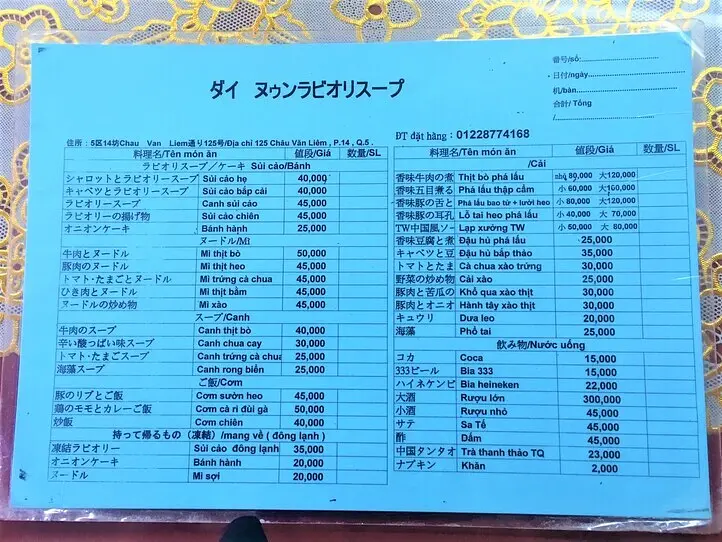 ダイ ヌゥンラビオリスープ
番号/số:
日付/ngày
机/bàn
合計/ Tổng
住所：5区14坊Chau Van Liem通り125号/Địa chỉ 125 Châu Văn Liêm , P.14 , Q.5 .
ĐT đặt hàng : 01228774168
料理名/Tên món ăn 値段/Giá 数量/SL
ラビオリスープ／ケーキ Sủi cảo/Bánh
シャロットとラビオリスープ Sủi cảo hẹ 40,000
キャベツとラビオリスープ Sủi cảo bắp cải 40,000
ラビオリスープ Canh sủi cảo 45,000
ラビオリーの揚げ物 Sủi cảo chiên 45,000
オニオンケーキ Bánh hành 25,000
ヌードル/Mì
牛肉とヌードル Mì thịt bò 50,000
豚肉のヌードル Mì thịt heo 45,000
トマト・たまごとヌードル Mì trứng cà chua 45,000
ひき肉とヌードル Mì thịt bằm 45,000
ヌードルの炒め物 Mì xào 45,000
スープ/Canh
牛肉のスープ Canh thịt bò 40,000
辛い酸っぱい味スープ Canh chua cay 30,000
トマト・たまごスープ Canh trứng cà chua 25,000
海藻スープ Canh rong biển 25,000
ご飯/Cơm
豚のリブとご飯 Cơm sườn heo 45,000
鶏のモモとカレーご飯 Cơm cà ri đùi gà 50,000
炒飯 Cơm chiên 40,000
持って帰るもの（凍結）/mang về ( đông lạnh )
凍結ラビオリー Sủi cảo đông lạnh 35,000
オニオンケーキ Bánh hành 20,000
ヌードル Mì sợi 20,000
料理名/Tên món ăn 値段/Giá 数量/SL
/Cải
香味牛肉の煮 Thịt bò phá lấu nhỏ 80,000 大120,000
香味五目煮る Phá lấu thập cẩm 小 60,000 大160,000
香味豚の舌と Phá lấu bao tử + lưỡi heo 小 80,000 大120,000
香味豚の耳孔 Lỗ tai heo phá lấu 小 40,000 大 70,000
TW中国風ソー Lạp xưởng TW 小 50,000 大 80,000
香味豆腐と煮 Đậu hủ phá lấu 25,000
キャベツと豆 Đậu hủ bắp thảo 35,000
トマトとたま Cà chua xào trứng 30,000
野菜の炒め物 Cải xào 25,000
豚肉と苦瓜の Khổ qua xào thịt 30,000
豚肉とオニオ Hành tây xào thịt 30,000
キュウリ Dưa leo 20,000
海藻 Phổ tai 25,000
飲み物/Nước uống
コカ Coca 15,000
333ビール Bia 333 15,000
ハイネケンビ Bia heineken 22,000
大酒 Rượu lớn 300,000
小酒 Rượu nhỏ 45,000
サテ Sa Tế 45,000
酢 Dấm 45,000
中国タンタオ Trà thanh thảo TQ 23,000
ナプキン Khăn 2,000